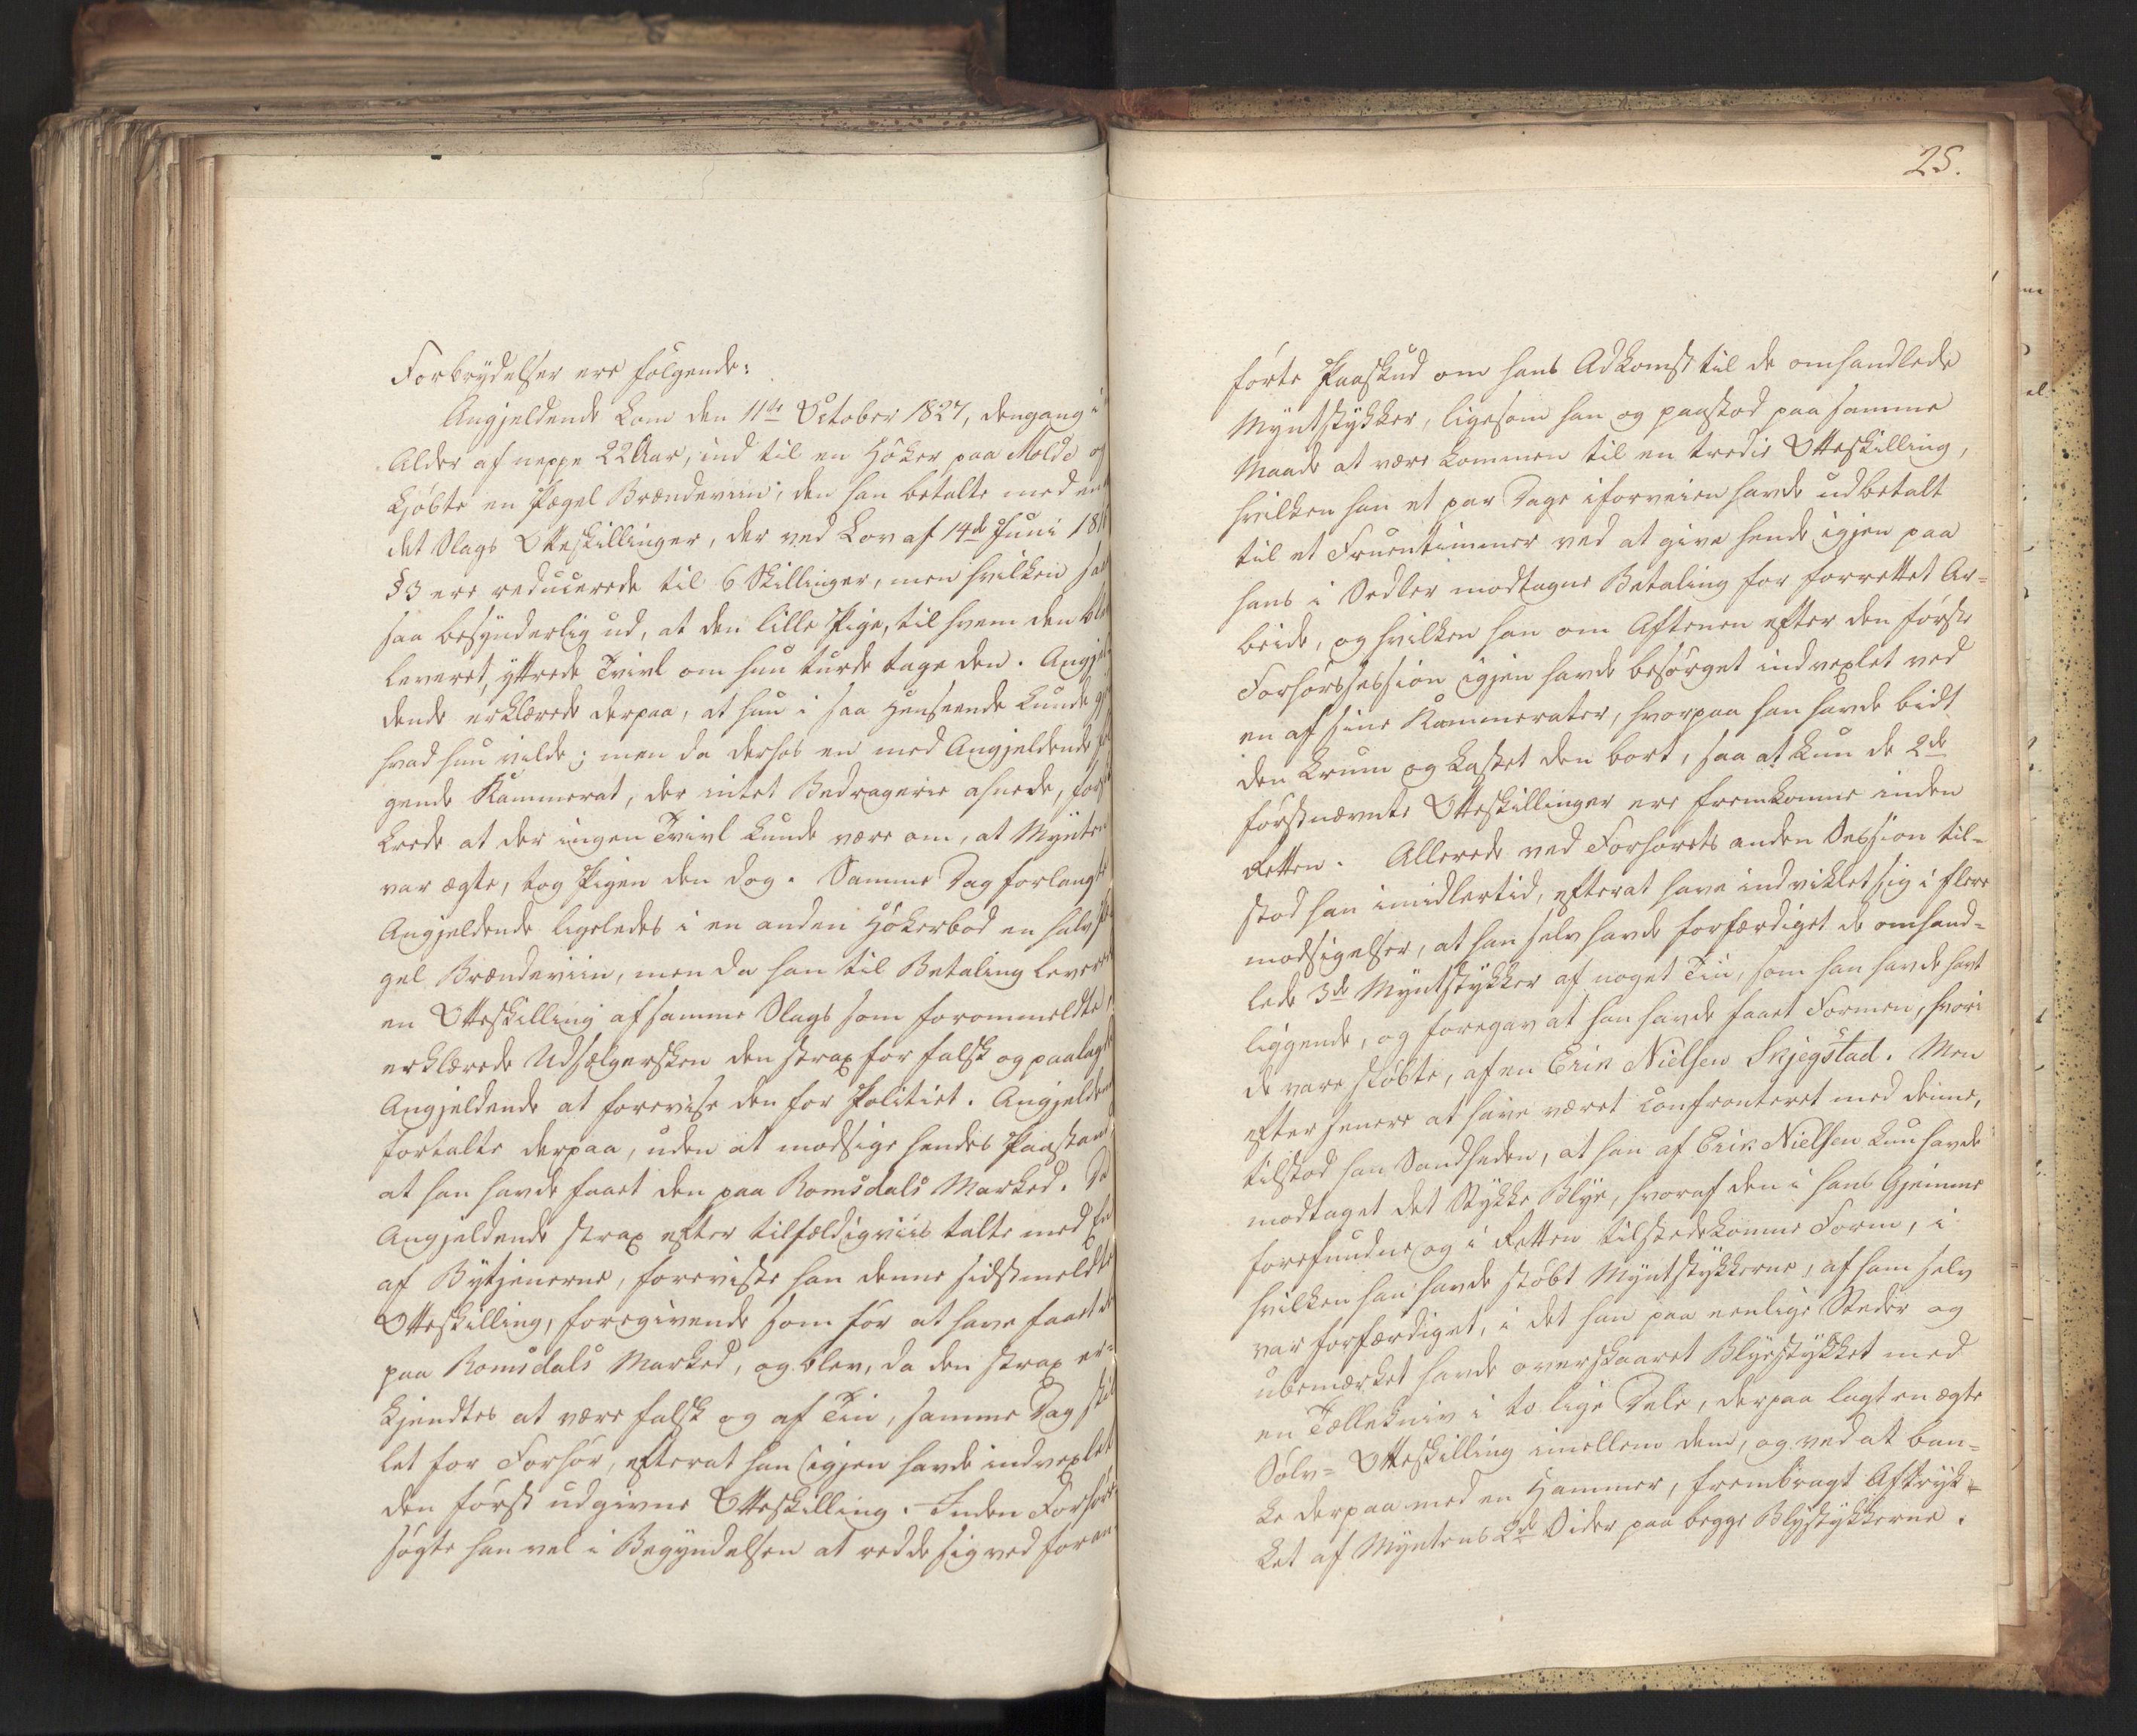 Forbrydelser ere følgende:
Angjeldende kom den 11te October 1827, dengang i
Alder af neppe 22 Aar, ind til en Høker paa Molde og
kjøbte en Pægel Brændeviin; den han betalte med en
det Slags Otteskillinger, der ved Lov af 14de Juni 181
§3 ere reducerede til 6 Skillinger, men hvilken saa
saa besynderlig ud, at den lille Pige, til hvem den blev
leveret, yttrede Tvivl om hun turde tage den. Angjel
dende erklærede derpaa, at hun i saa Henseende kunde gj
hvad hun vilde; men da derhos en med Angjeldende føl
gende Kammerat, der intet Bedragerie ahnede, forsik
krede at der ingen Tvivl kunde være om, at Mynten
var ægte, tog Pigen den dog. Samme Dag forlangte
Angjeldende ligeledes i en anden Høkerbod en halv Pæ
gel Brændeviin, men da han til Betaling leverede
en Otteskilling af samme Slags som forommeldte,
erklærede Udsælgersken den strax for falsk og paalagde
Angjeldende at forevise den for Politiet. Angjeldende
fortalte derpaa, uden at modsige hendes Paastand,
at han havde faaet den paa Romsdals Marked. Da
Angjeldende strax efter tilfældigviis talte med En
af Bytjenerne, foreviste han denne sidstmeldte
Otteskilling, foregivende som før at have faaet den
paa Romsdals Marked, og blev, da den strax er-
kjendtes at være falsk og af Tin, samme Dag stil
let for Forhør, efterat han igjen havde indvexlet
den først udgivne Otteskilling. Inden Forhøret
søgte han vel i Begyndelsen at redde sig ved foran
25.
førte Paaskud om hans Adkomst til de omhandlede
Myntstykker, ligesom han og paastod paa samme
Maade at være kommen til en tredie Otteskilling,
hvilken han et par Dage iforveien havde udbetalt
til et Fruentimmer ved at give hende igjen paa
hans i Sedler modtagne Betaling for forrettet Ar-
beide, og hvilken han om Aftenen efter den første
Forhørssession igjen havde besørget indvexlet ved
en af sine Kammerater, hvorpaa han havde bidt
den krum og kastet den bort, saa at kun de 2de
førstnævnte Otteskillinger ere fremkomne inden
Retten. Allerede ved Forhørets anden Session til-
stod han imidlertid, efterat have indviklet sig i flere
modsigelser, at han selv havde forfærdiget de omhand-
lede 3de Myntstykker af noget Tin, som han havde havt
liggende, og foregav at han havde faaet Formen, hvori
de vare støbte, af en Erik Nielsen Skjegstad. Men
efter senere at have været confronteret med denne,
tilstod han Sandheden, at han af Erik Nielsen kun havde
modtaget det Stykke Blye, hvoraf den i hans Gjemme
forefundne og i Retten tilstedekomne Form, i
hvilken han havde støbt Myntstykkerne, af ham selv
var forfærdiget, i det han paa eenlige Steder og
ubemærket havde overskaaret Blyestykket med
en Tællekniv i to lige Dele, derpaa lagt en ægte
Sølv-Otteskilling imellem dem, og ved at ban-
ke derpaa med en Hammer, frembragt Aftryk-
ket af Myntens 2de Sider paa begge Blystykkerne.